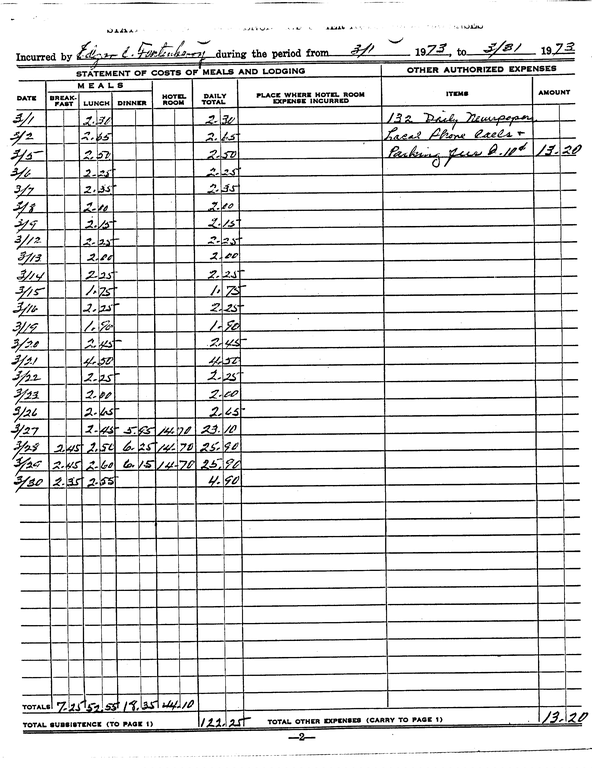 Incurred by Edgar C. Fortenberry during the period from 3/1 1973, to 3/31 1973
STATEMENT OF COSTS OF MEALS AND LODGING OTHER AUTHORIZED EXPENSES
MEALS
DATE BREAK-FAST LUNCH DINNER HOTEL ROOM DAILY TOTAL PLACE WHERE HOTEL ROOM EXPENSE INCURRED ITEMS AMOUNT
3/1 2.30 2.30 132 Daily Newspaper,
3/2 2.65 2.65 Local Phone Calls +
3/5 2.50 2.50 Parking 10¢ 13.20
3/6 2.25 2.25
3/7 2.35 2.35
3/8 2.00 2.00
3/9 2.15 2.15
3/12 2.25 2.25
3/13 2.00 2.00
3/14 2.25 2.25
3/15 1.75 1.75
3/16 2.25 2.25
3/19 1.90 1.90
3/20 2.45 2.45
3/21 4.50 4.50
3/22 2.25 2.25
3/23 2.00 2.00
3/26 2.65 2.65
3/27 2.45 5.95 14.70 23.10
3/28 2.45 2.50 6.25 14.70 25.90
3/29 2.45 2.60 6.15 14.70 25.90
3/30 2.35 2.55 4.90
TOTALS 7.25 52.55 18.35 44.10
TOTAL SUBSISTENCE (TO PAGE 1) 122.25 TOTAL OTHER EXPENSES (CARRY TO PAGE 1) 13.20
—2—